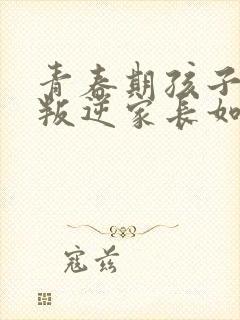 青春期孩子
叛逆家长如
寇兹